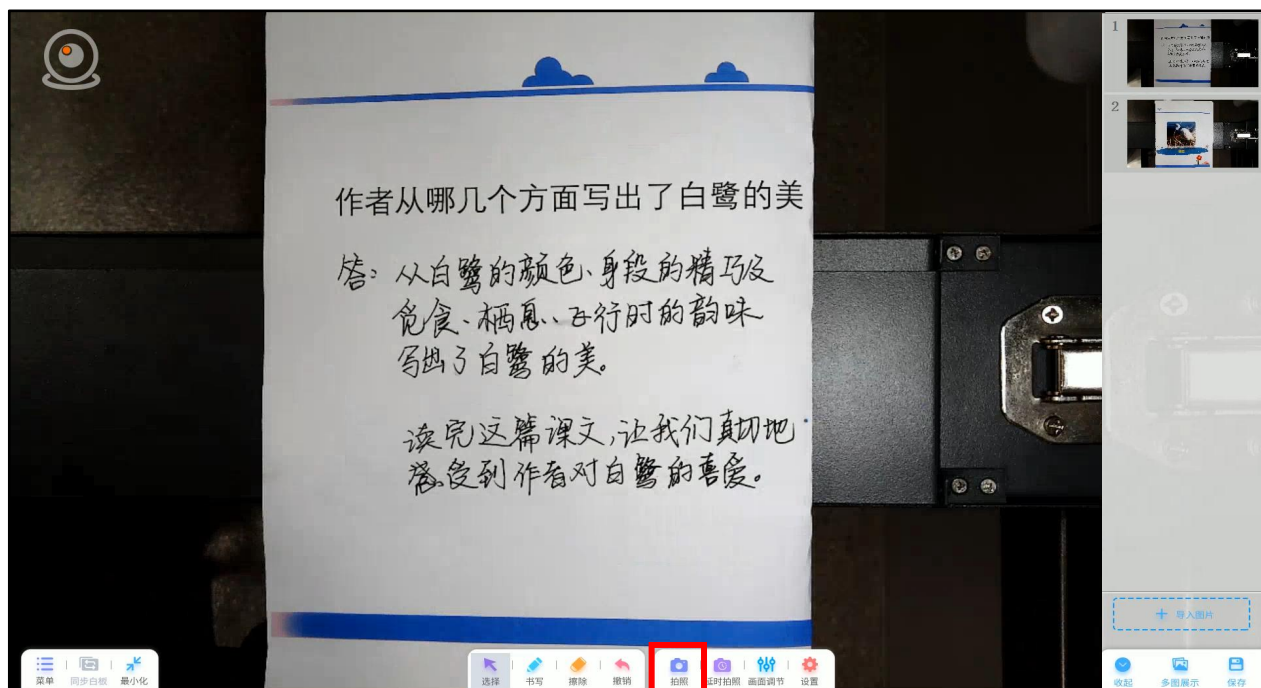 作者从哪几个方面写出了白鹭的美
答：从白鹭的颜色、身段的精巧及
觅食、栖息、飞行时的韵味
写出了白鹭的美。
读完这篇课文，让我们真切地
感受到作者对白鹭的喜爱。
1
2
导入图片
菜单 同步白板 最小化
选择 书写 擦除 撤销
拍照 延时拍照 画面调节 设置
收起 多图展示 保存